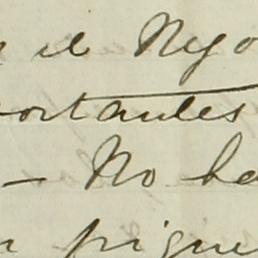 el Nego
ortantes
— No ha
pigue